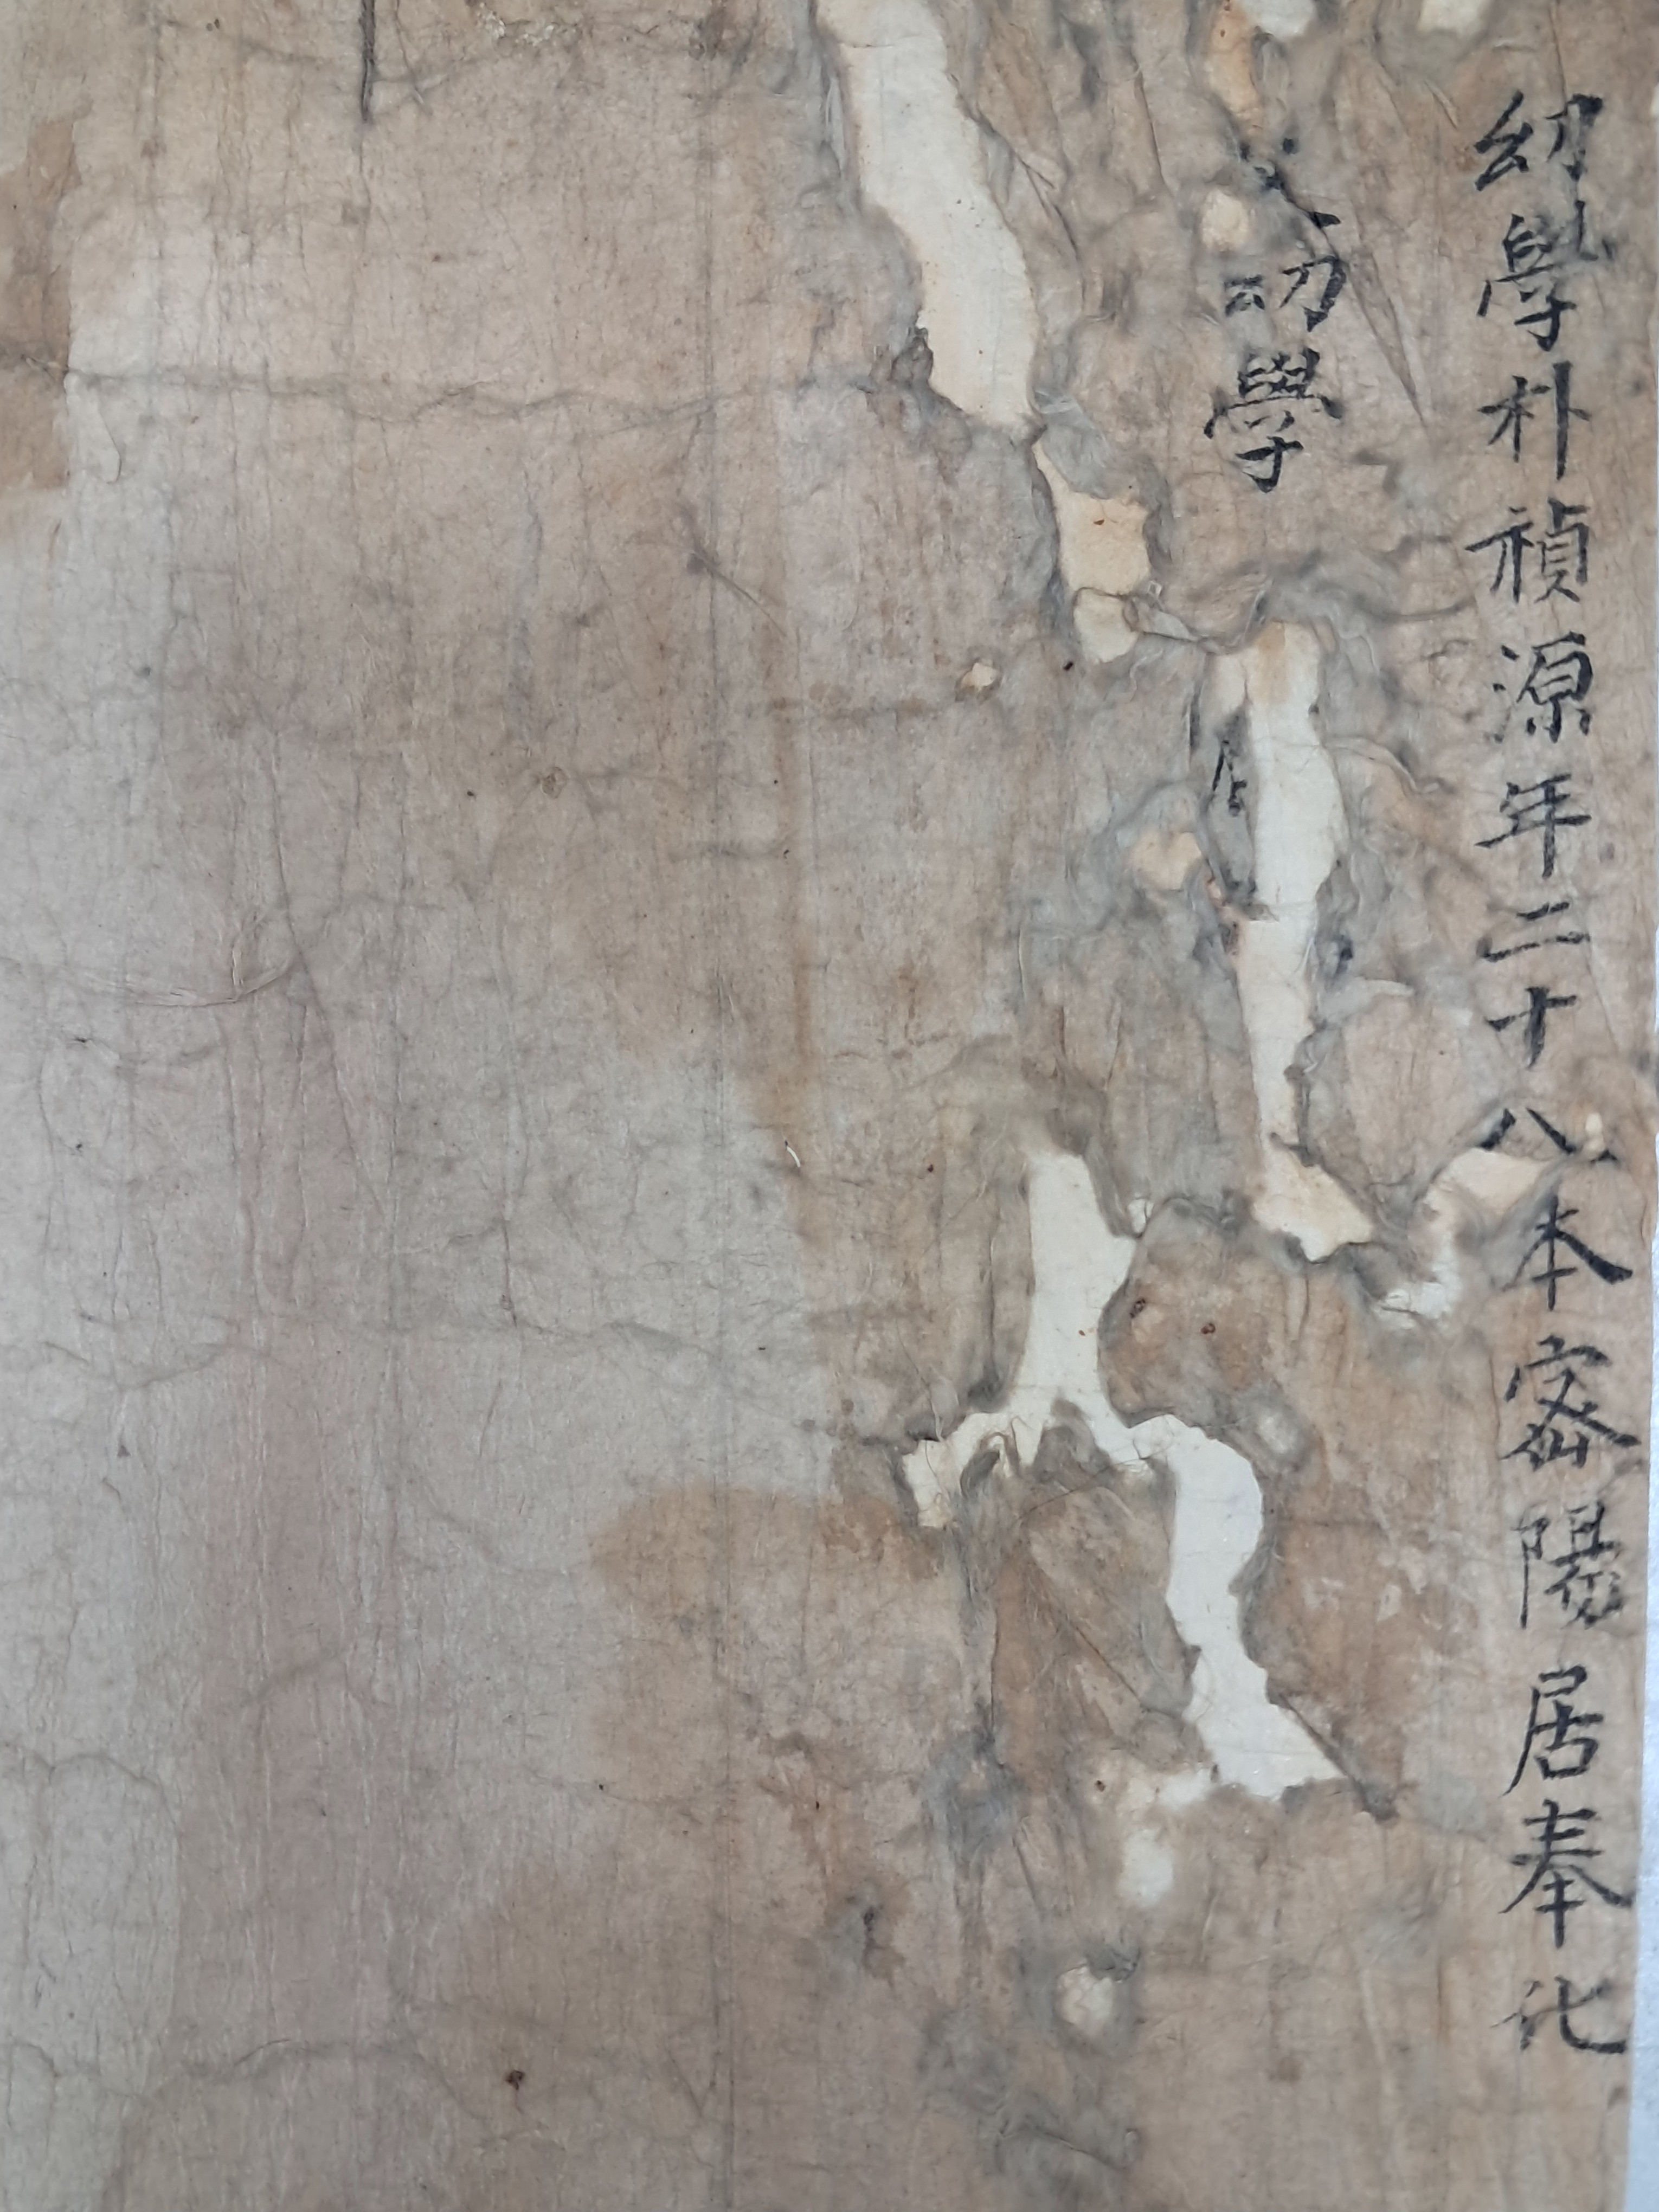 幼學朴禎源年二十八本密陽居奉化
父幼學